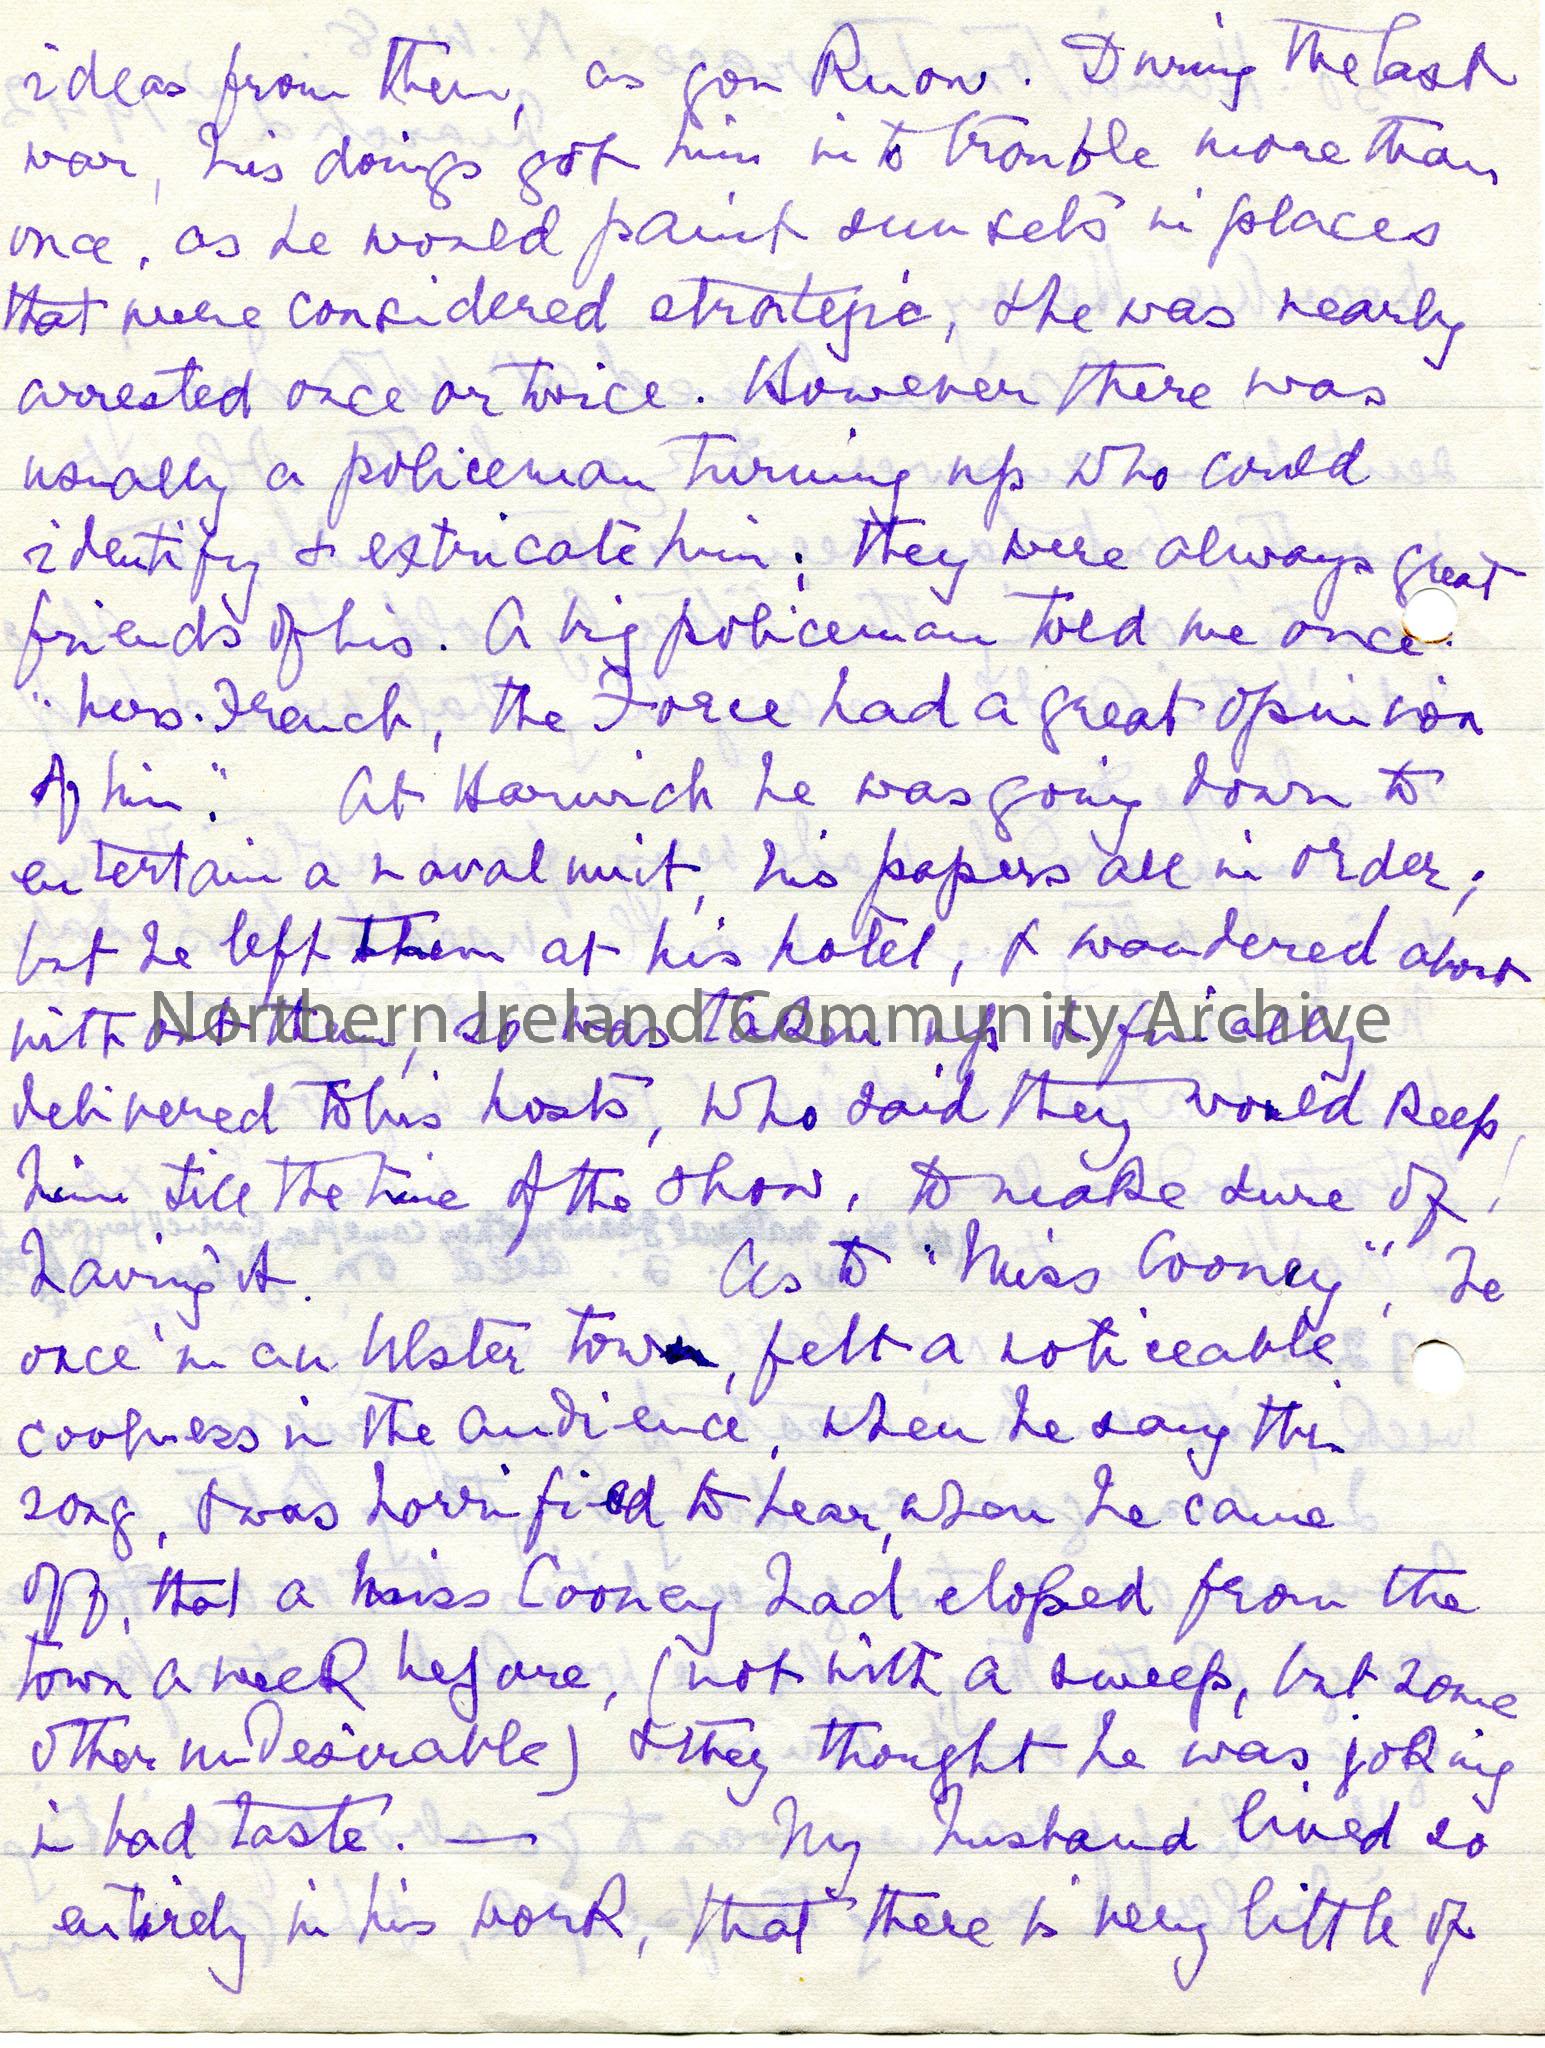 ideas from them, as you know. During the last
war, his doings got him into trouble more than
once, as he would paint sunsets in places
that were considered strategic, & he was nearly
arrested once or twice. However there was
usually a policeman turning up who could
identify & extricate him; they were always great
friends of his. A big policeman told me once.
"Mrs. French, the Force had a great opinion
of him". At Harwich he was going down to
entertain a naval unit, his papers all in order;
but he left them at his hotel, & wandered about
without them, so was taken up & finally
Northern Ireland Community Archive
delivered to his hosts, who said they would keep
him till the time of the show, to make sure of
having it. As to "Miss Cooney", he
once in an Ulster town, felt a noticeable
coolness in the audience, when he sang this
song, & was horrified to hear, when he came
off, that a Miss Cooney had eloped from the
town a week before, (not with a sweep, but some
other undesirable) & they thought he was joking
in bad taste. — My husband lived so
entirely in his work, that there is very little of